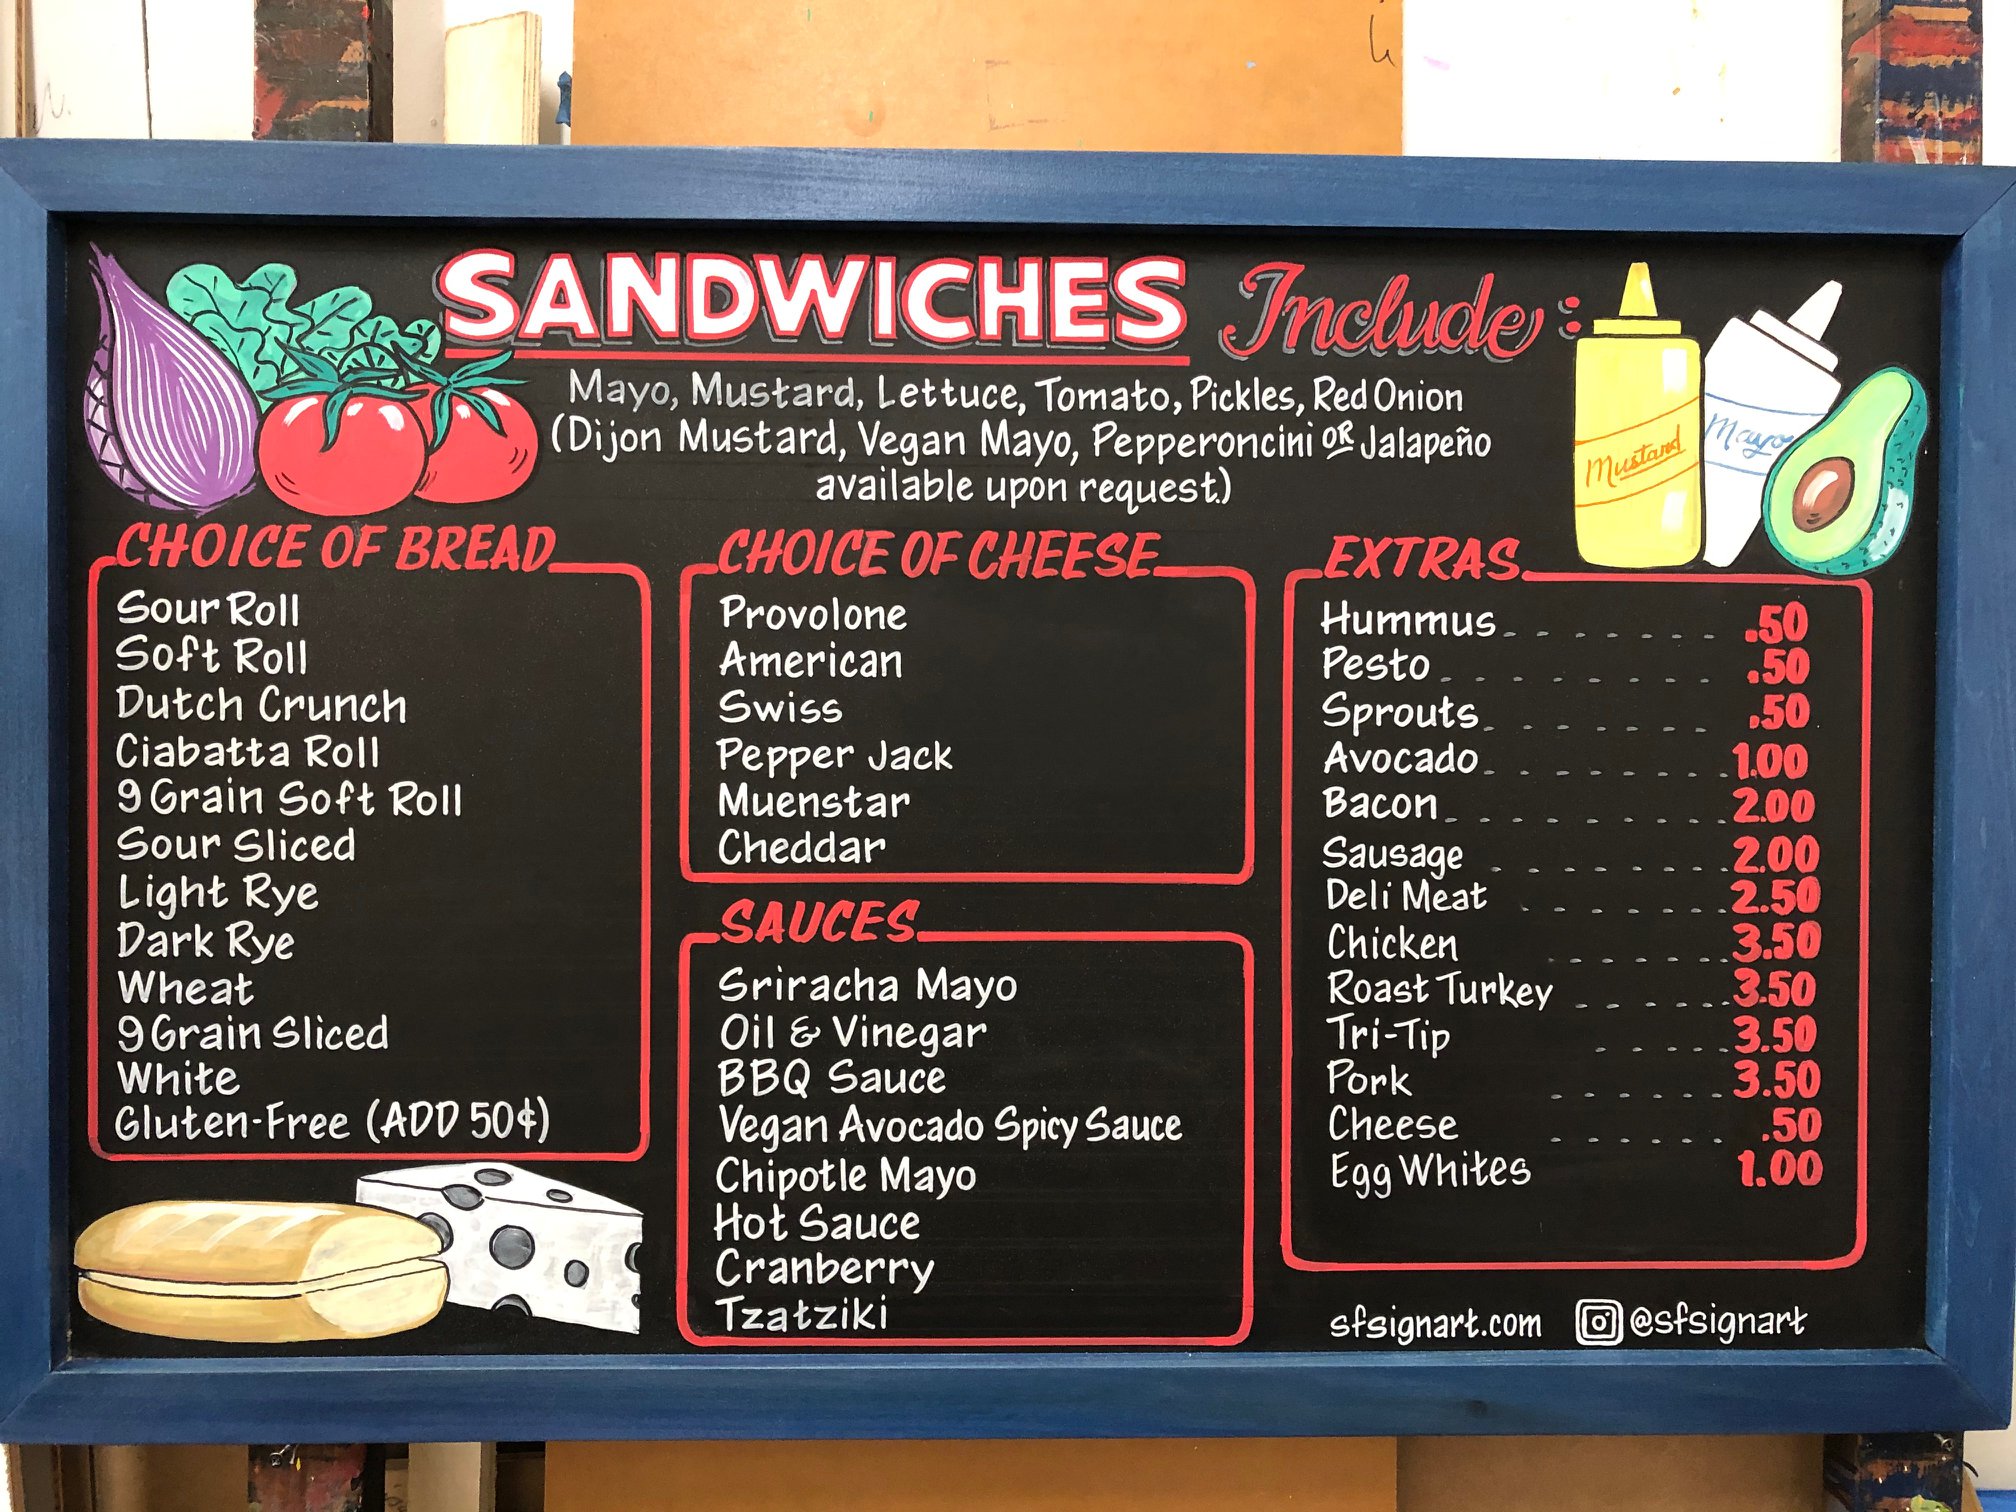 SANDWICHES Include:
Mayo, Mustard, Lettuce, Tomato, Pickles, Red Onion
(Dijon Mustard, Vegan Mayo, Pepperoncini OR Jalapeño
available upon request.)
Mustard
Mayo
CHOICE OF BREAD
Sour Roll
Soft Roll
Dutch Crunch
Ciabatta Roll
9 Grain Soft Roll
Sour Sliced
Light Rye
Dark Rye
Wheat
9 Grain Sliced
White
Gluten-Free (ADD 50¢)
CHOICE OF CHEESE
Provolone
American
Swiss
Pepper Jack
Muenstar
Cheddar
SAUCES
Sriracha Mayo
Oil & Vinegar
BBQ Sauce
Vegan Avocado Spicy Sauce
Chipotle Mayo
Hot Sauce
Cranberry
Tzatziki
EXTRAS
Hummus .50
Pesto .50
Sprouts .50
Avocado 1.00
Bacon 2.00
Sausage 2.00
Deli Meat 2.50
Chicken 3.50
Roast Turkey 3.50
Tri-Tip 3.50
Pork 3.50
Cheese .50
Egg Whites 1.00
sfsignart.com @sfsignart